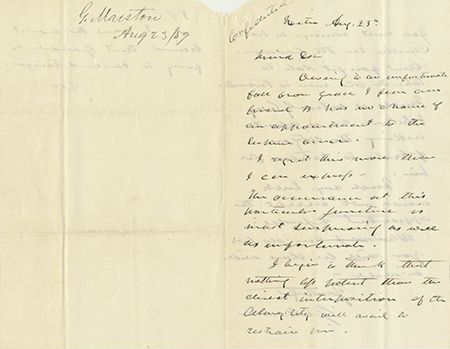 G. Marston
Aug 23/59
Confidential
Exeter Aug. 23rd
Owing to an unfortunate
fall from Grace I fear our
friend B has no chance of
an appointment to the
Supreme Court.
I regret this more than
I can express –
The occurrence at this
particular juncture is
most surprising as well
as unfortunate.
I begin to think that
nothing less potent than the
direct interposition of the
Almighty will avail to
restrain him.